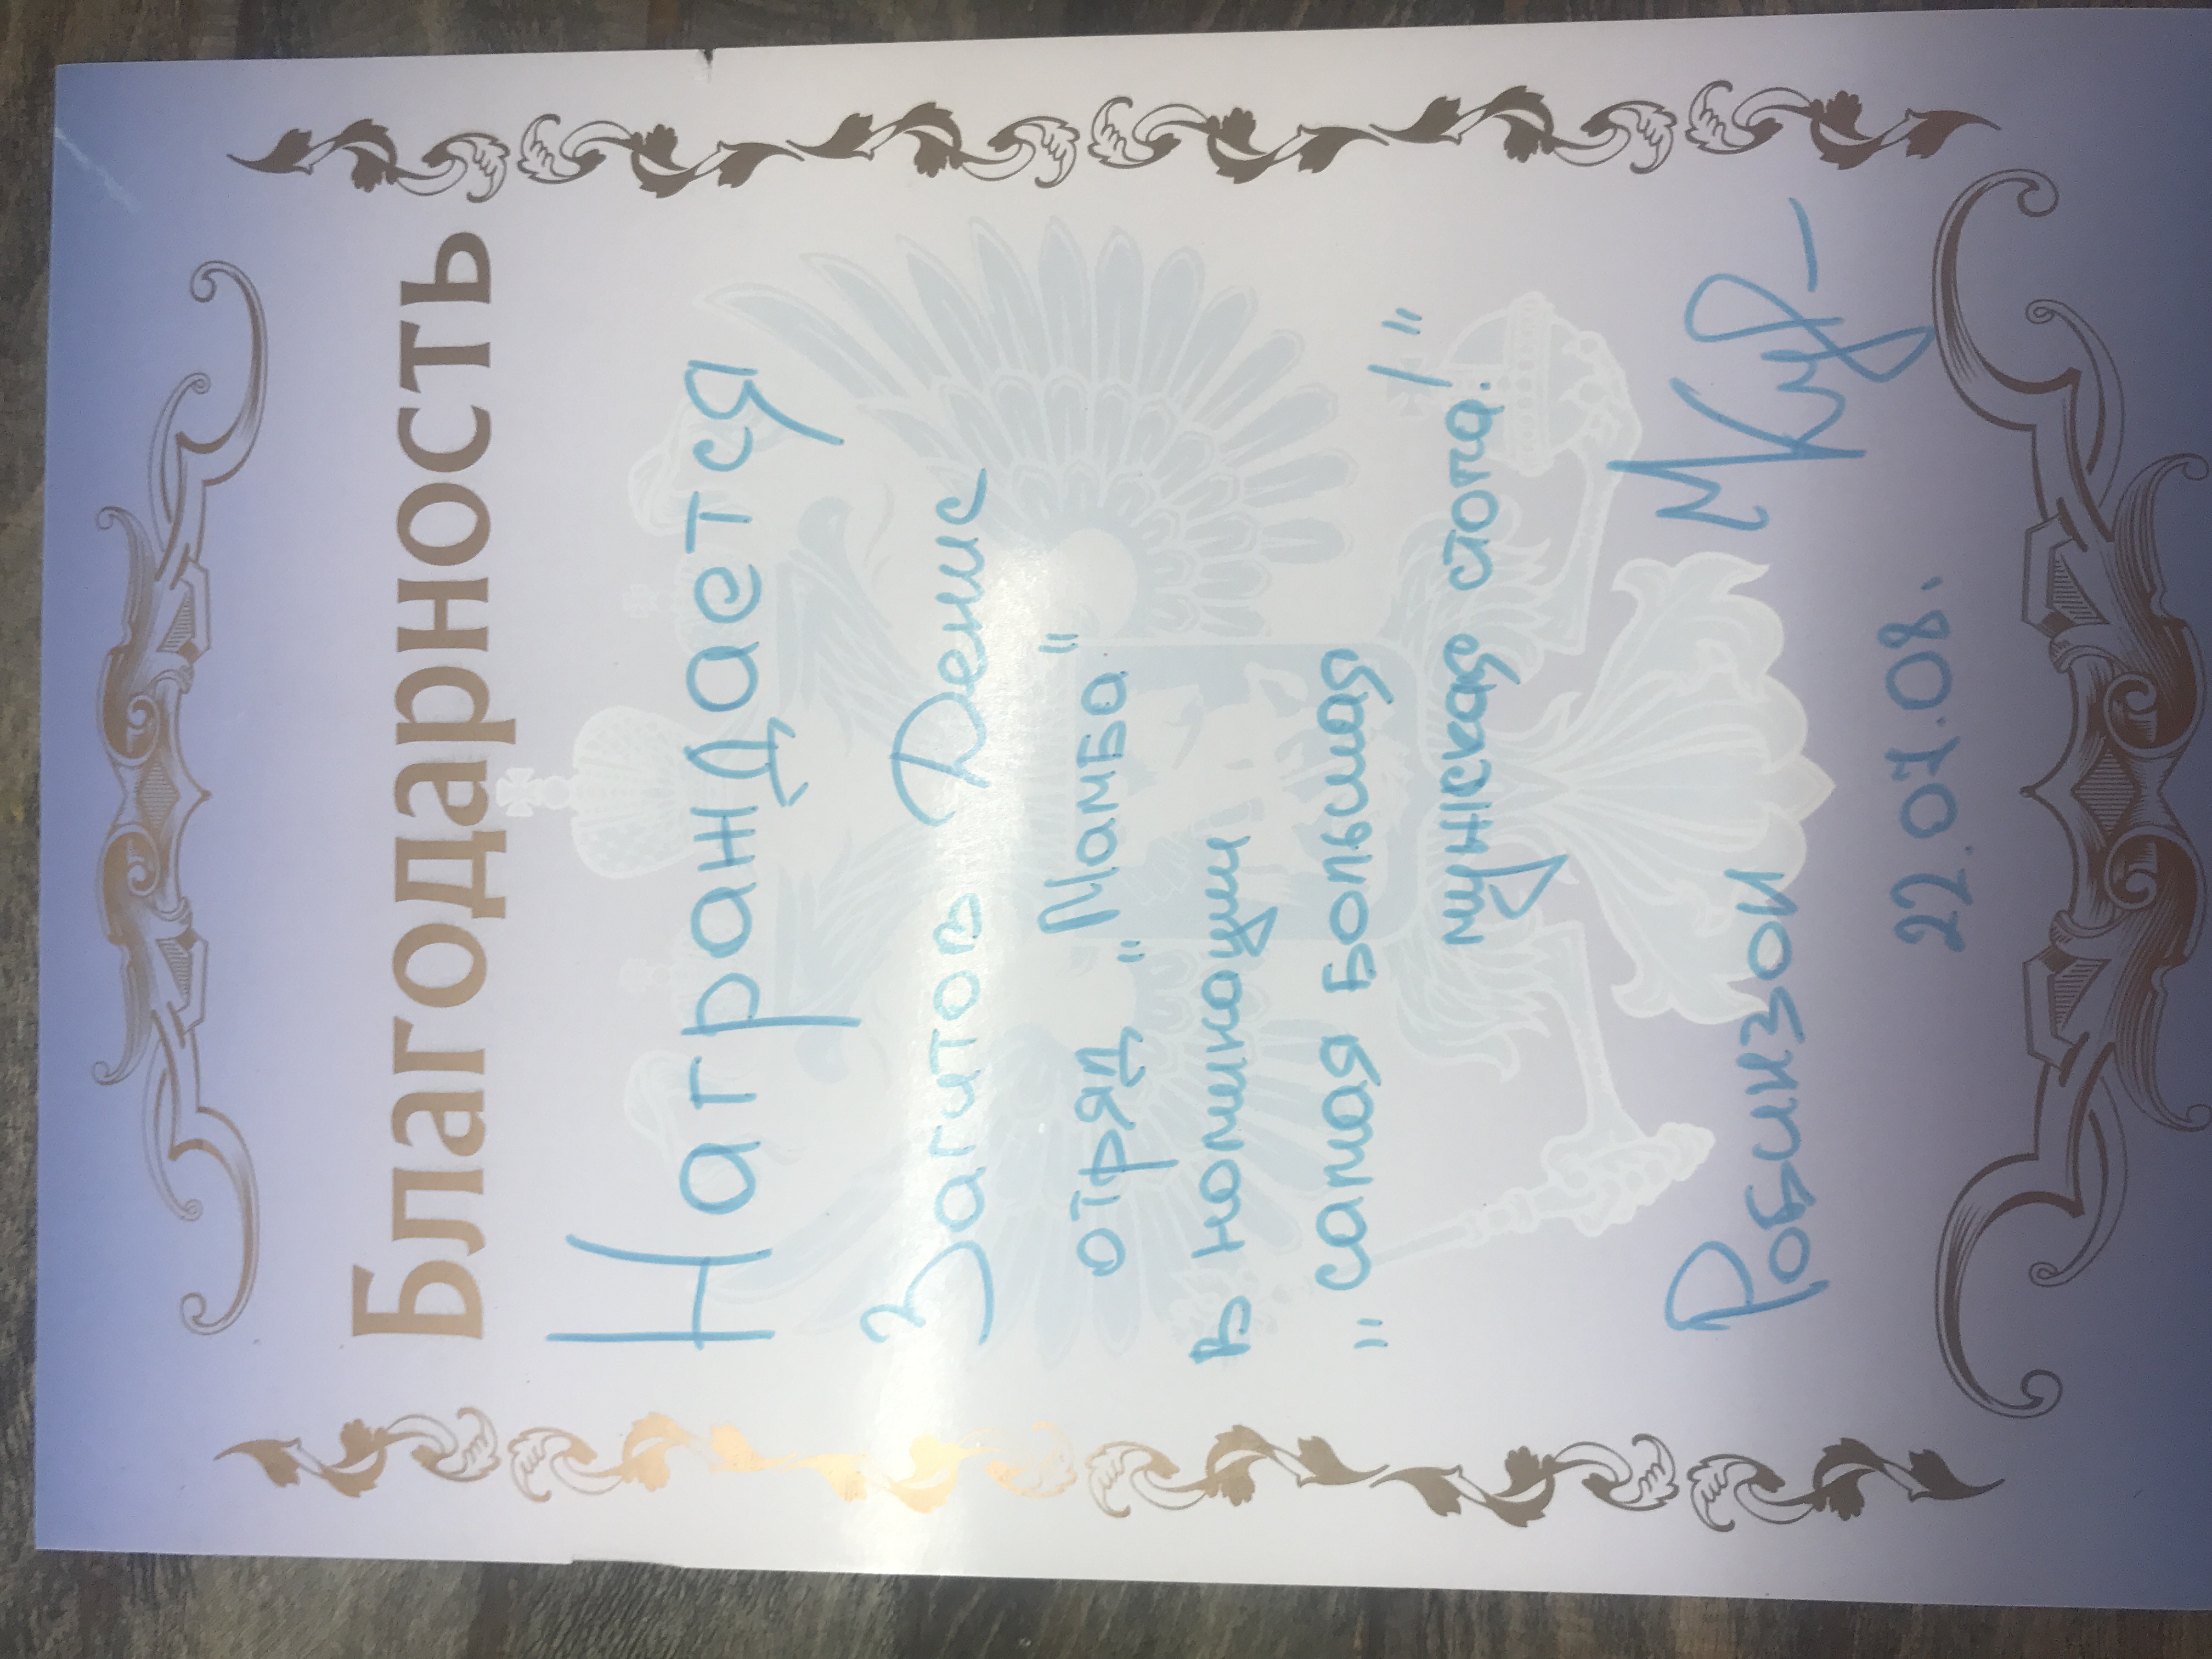 Благодарность
Награждается
Загитов Денис
отряд „Мамба"
в номинации
„самая большая
мужская стопа!"
Робинзон
22.07.08.